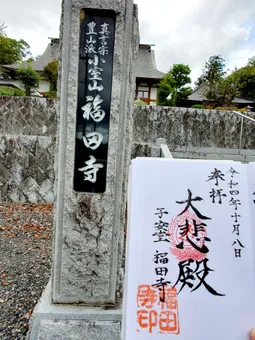 真言宗
豊山派
小室山
福田寺
奉拝
令和四年十月八日
大悲殿
子安堂 福田寺
福田
寺印